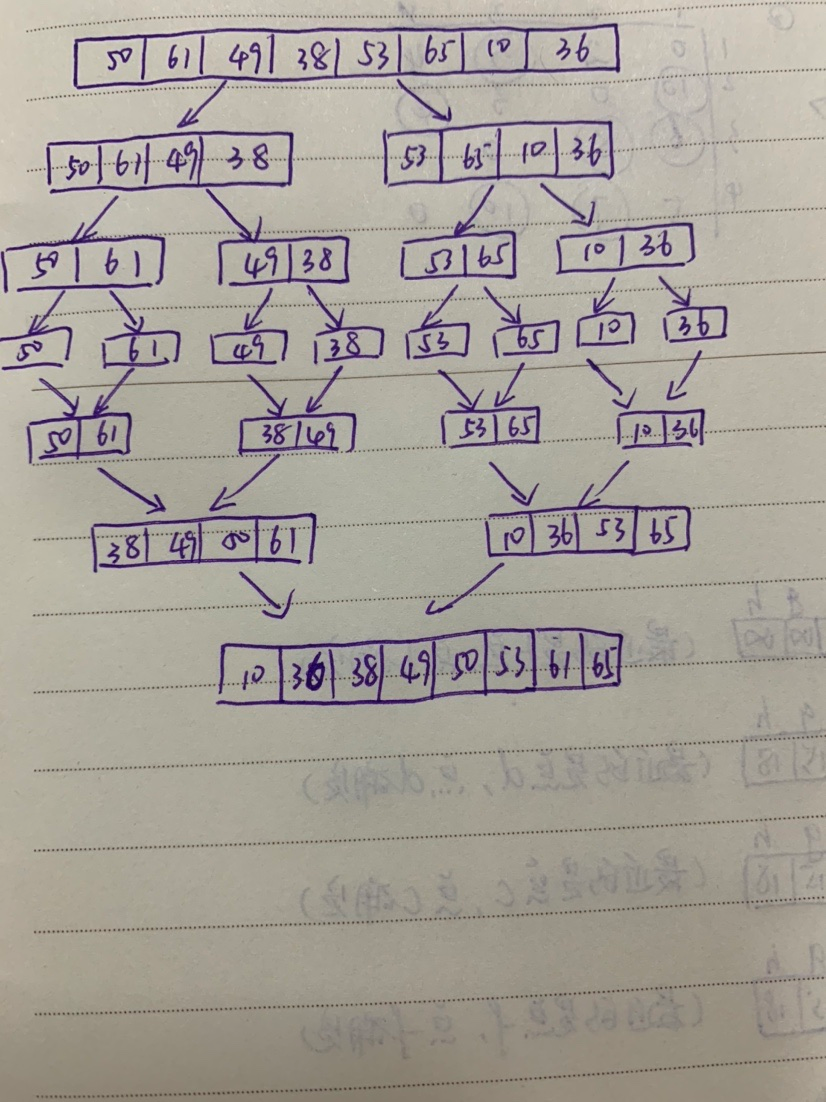 50 61 49 38 53 65 10 36
50 61 49 38 53 65 10 36
50 61 49 38 53 65 10 36
50 61 49 38 53 65 10 36
50 61 38 49 53 65 10 36
38 49 50 61 10 36 53 65
10 36 38 49 50 53 61 65